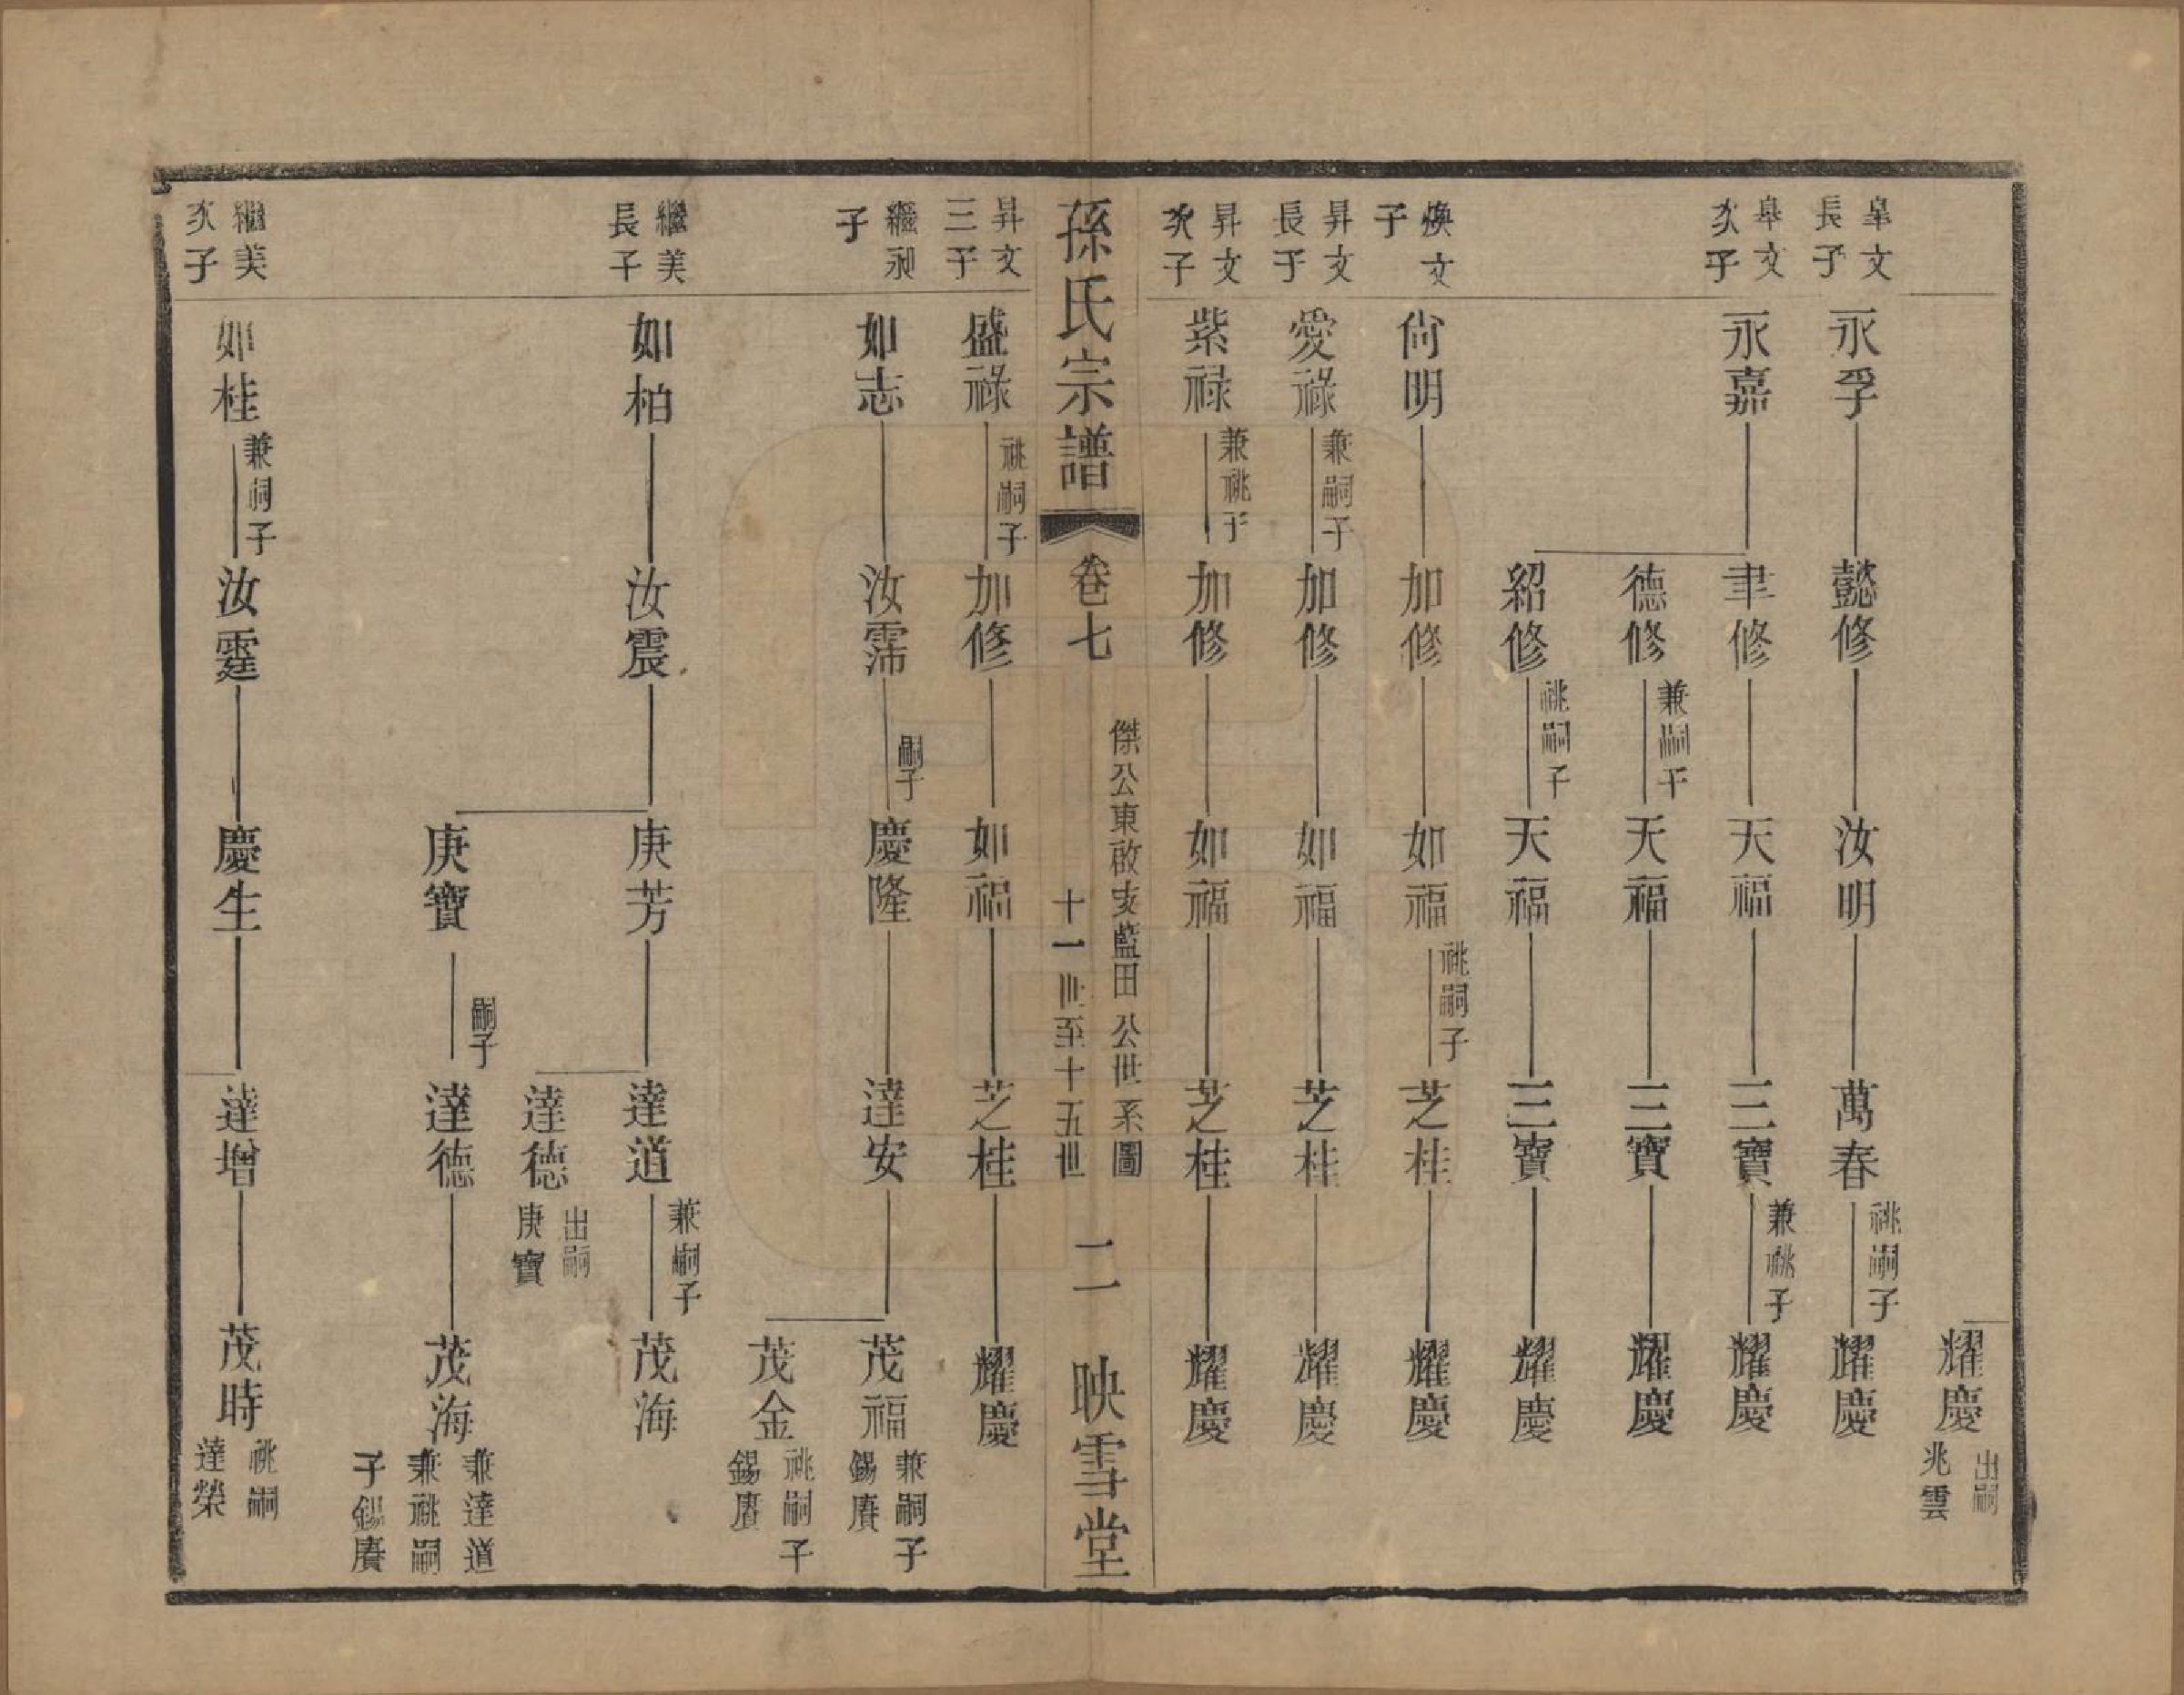 耀慶 出嗣兆雲
皐文長子 永孚 懿修 汝明 萬春 祧嗣子 耀慶
皐文次子 永嘉 聿修 天福 三寶 兼祧子 耀慶
德修 兼嗣子 天福 三寶 耀慶
紹修 祧嗣子 天福 三寶 耀慶
煥文子 尙明 加修 如福 祧嗣子 芝桂 耀慶
昇文長子 愛祿 兼嗣子 加修 如福 芝桂 耀慶
昇文次子 紫禄 兼祧子 加修 如福 芝桂 耀慶
孫氏宗譜 卷七 傑公東啟支藍田公世系圖 十一世至十五世 二 映雪堂
昇文三子 盛祿 祧嗣子 加修 如福 芝桂 耀慶
繼昶子 如志 汝霈 嗣子 慶隆 達安 茂福 兼嗣子錫賡
茂金 祧嗣子錫賡
繼美長子 如柏 汝震 庚芳 達道 兼嗣子 茂海
達德 出嗣庚寶
庚寶 嗣子 達德 茂海 兼達道兼祧嗣子錫賡
繼美次子 如桂 兼嗣子 汝霆 慶生 達增 茂時 祧嗣達榮